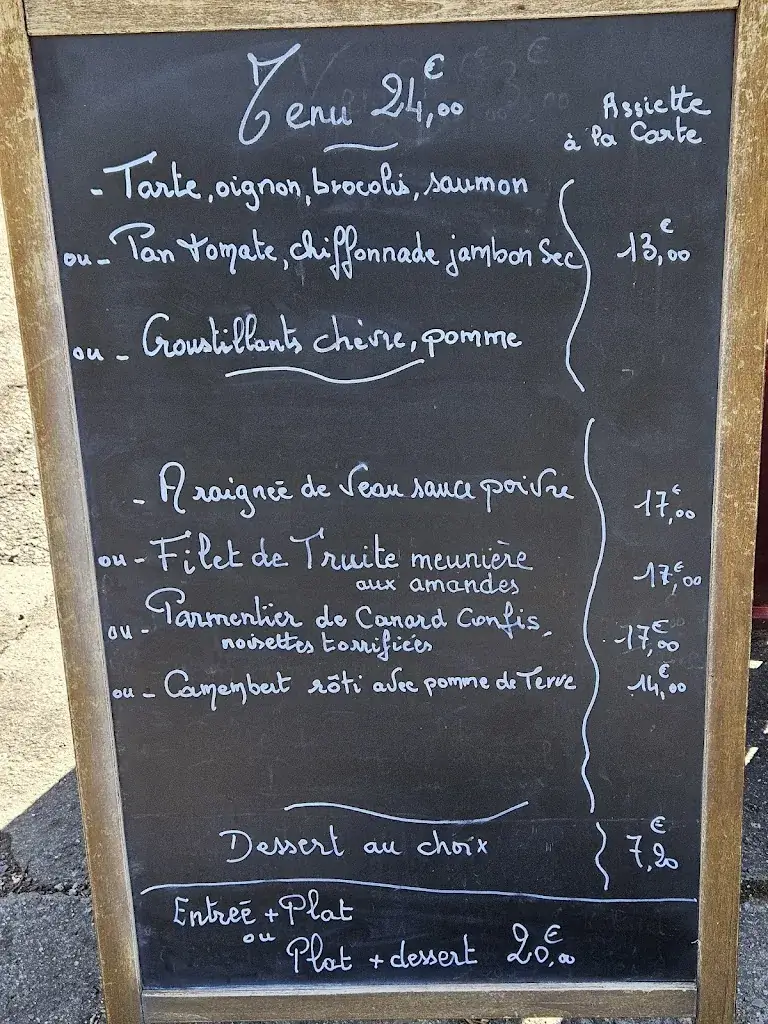 Menu 24,00€
Assiette
à la Carte
- Tarte, oignon, brocolis, saumon
ou - Pan tomate, chiffonnade jambon Sec 13,00€
ou - Croustillants chèvre, pomme
- Araignée de Veau sauce poivre 17,00€
ou - Filet de Truite meunière
aux amandes 17,00€
ou - Parmentier de Canard Confis,
noisettes torrifiées 17,00€
ou - Camembert rôti avec pomme de Terre 14,00€
Dessert au choix 7,20€
Entrée + Plat
ou
Plat + dessert 20,00€